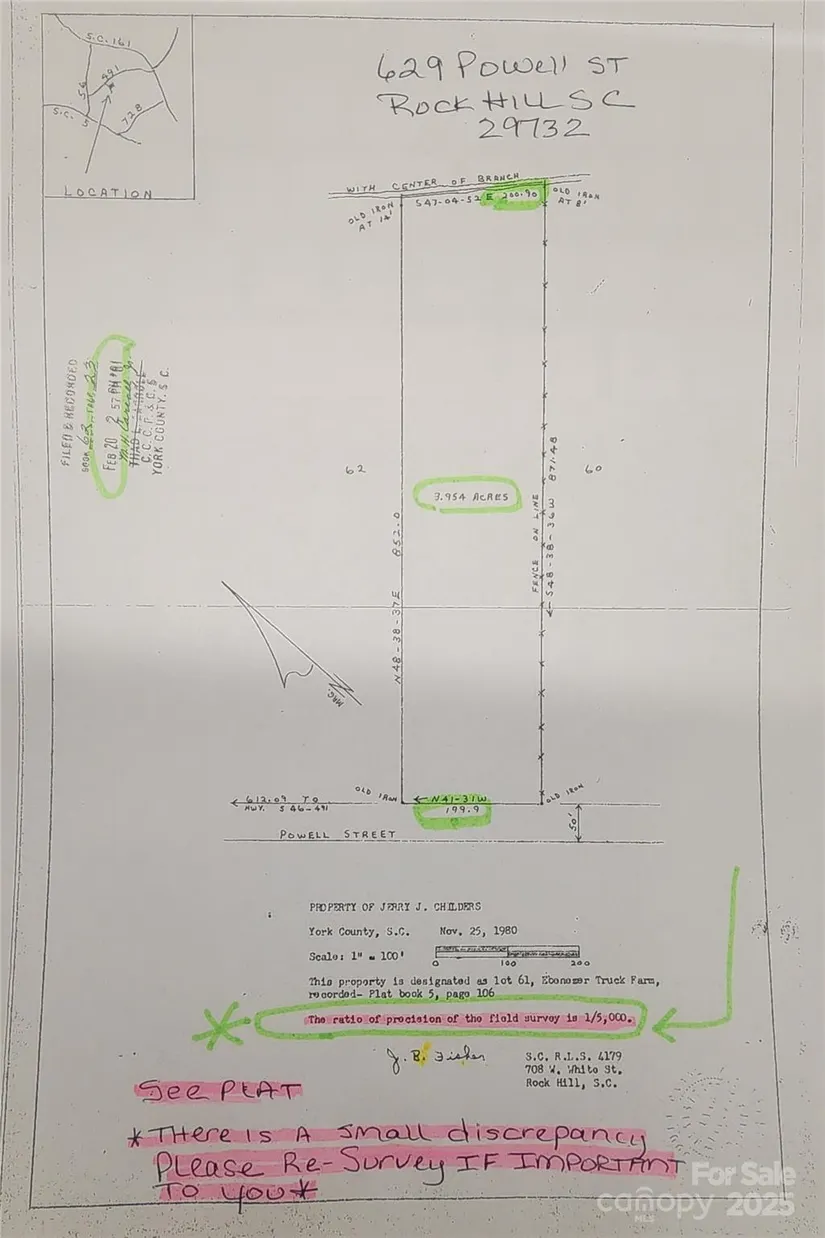 S.C. 161
491
54
S.C. 5
728
LOCATION
629 Powell ST
Rock Hill SC
29732
WITH CENTER OF BRANCH
OLD IRON
AT 14'
S47-04-52 E 200.90
OLD IRON
AT 8'
FILED & RECORDED
BOOK 62 PAGE 23
FEB 20 2 57 PM '81
C.C.C.P. & G.S
YORK COUNTY, S.C.
62
3.954 ACRES
60
N48-38-37E 852.0
FENCE ON LINE
S48-38-36W 871.48
MAG.
612.09 TO
HWY. S 46-491
OLD IRON
N41-31W
199.9
OLD IRON
50'
POWELL STREET
PROPERTY OF JERRY J. CHILDERS
York County, S.C. Nov. 25, 1980
Scale: 1" = 100'
0 100 200
This property is designated as lot 61, Ebenezer Truck Farm,
recorded- Plat book 5, page 106
The ratio of precision of the field survey is 1/5,000.
J. B. Fisher
S.C. R.L.S. 4179
708 W. White St.
Rock Hill, S.C.
See PLAT
* THere is A small discrepancy
Please Re-Survey IF IMPORTANT
TO you *
For Sale
canopy 2025
MLS